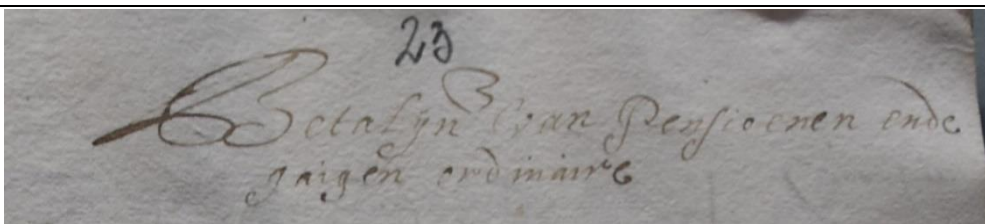 23
Betalyn van Pensioenen ende
gaigen ordinaire